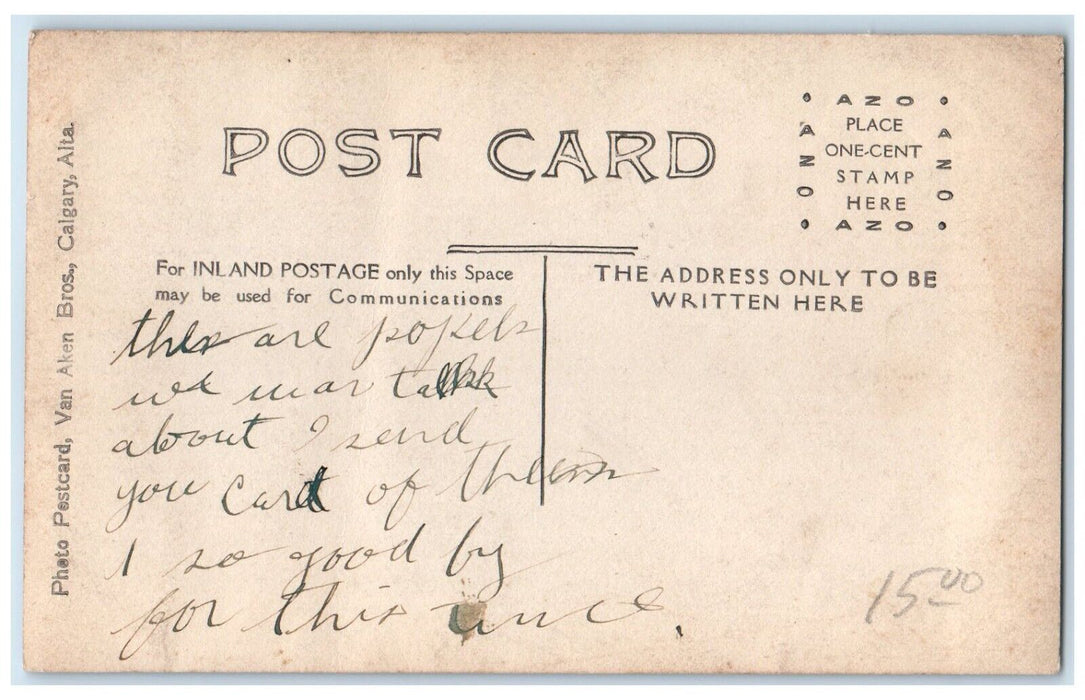 POST CARD
AZO
AZO
AZO
AZO
PLACE
ONE-CENT
STAMP
HERE
Photo Postcard, Van Aken Bros., Calgary, Alta.
For INLAND POSTAGE only this Space
may be used for Communications
THE ADDRESS ONLY TO BE
WRITTEN HERE
are
talk
about I send
you Card of theem
I so good by
for this unce.
15.00